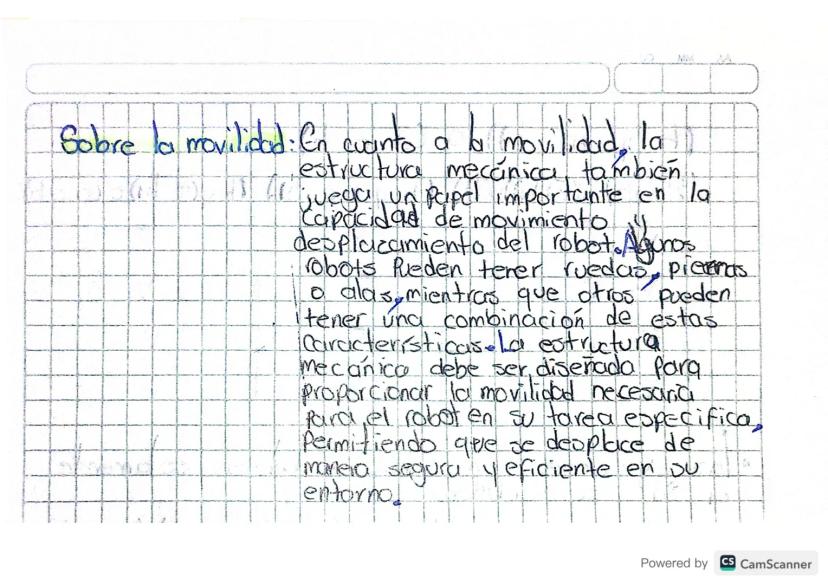 Sobre la movilidad: En cuanto a la movilidad, la
estructura mecánica, también
juega un Papel importante en la
capacidad de movimiento y
desplazamiento del robot. Algunos
robots Pueden tener ruedas, piernas
o alas, mientras que otros pueden
tener una combinación de estas
características. La estructura
mecánica debe ser diseñada para
proporcionar la movilidad necesaria
para el robot en su tarea especifica,
Permitiendo que se desplace de
manera segura y eficiente en su
entorno.
Powered by CS CamScanner